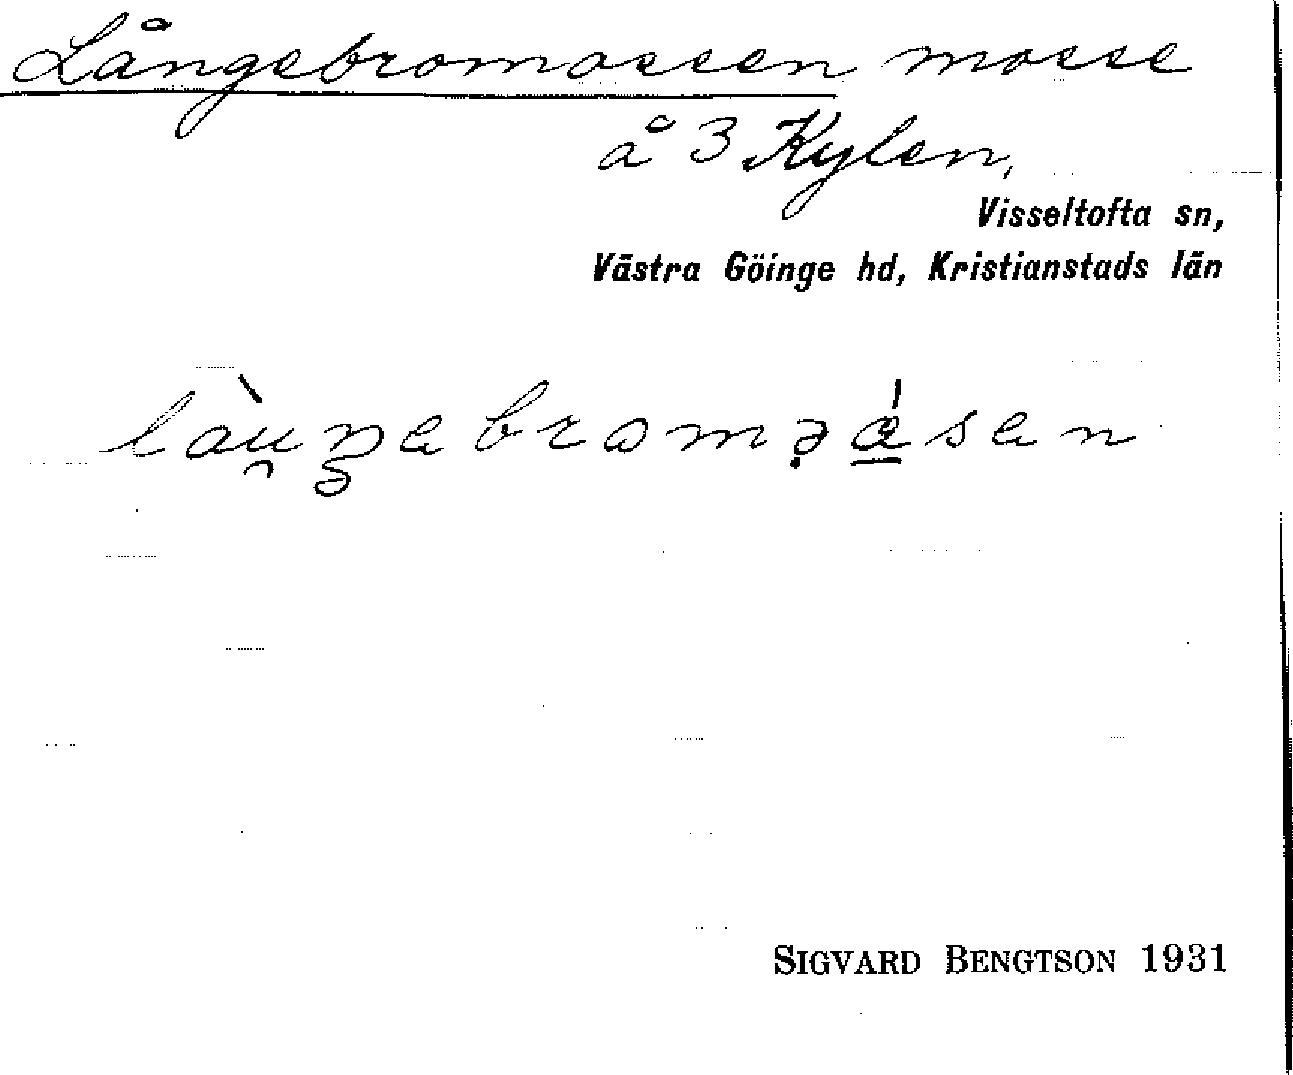 Långebromossen mosse
å 3 Kylen,
Visseltofta sn,
Västra Göinge hd, Kristianstads län
SIGVARD BENGTSON 1931